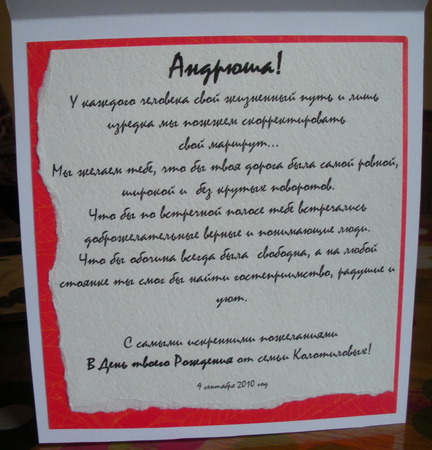 Андрюша!
У каждого человека свой жизненный путь и лишь
изредка мы можем скорректировать
свой маршрут...
Мы желаем тебе, что бы твоя дорога была самой ровной,
широкой и без крутых поворотов.
Что бы по встречной полосе тебе встречались
доброжелательные верные и понимающие люди.
Что бы обочина всегда была свободна, а на любой
стоянке ты смог бы найти гостеприимство, радушие и
уют.
С самыми искренними пожеланиями
В День твоего Рождения от семьи Колотиловых!
9 сентября 2010 год